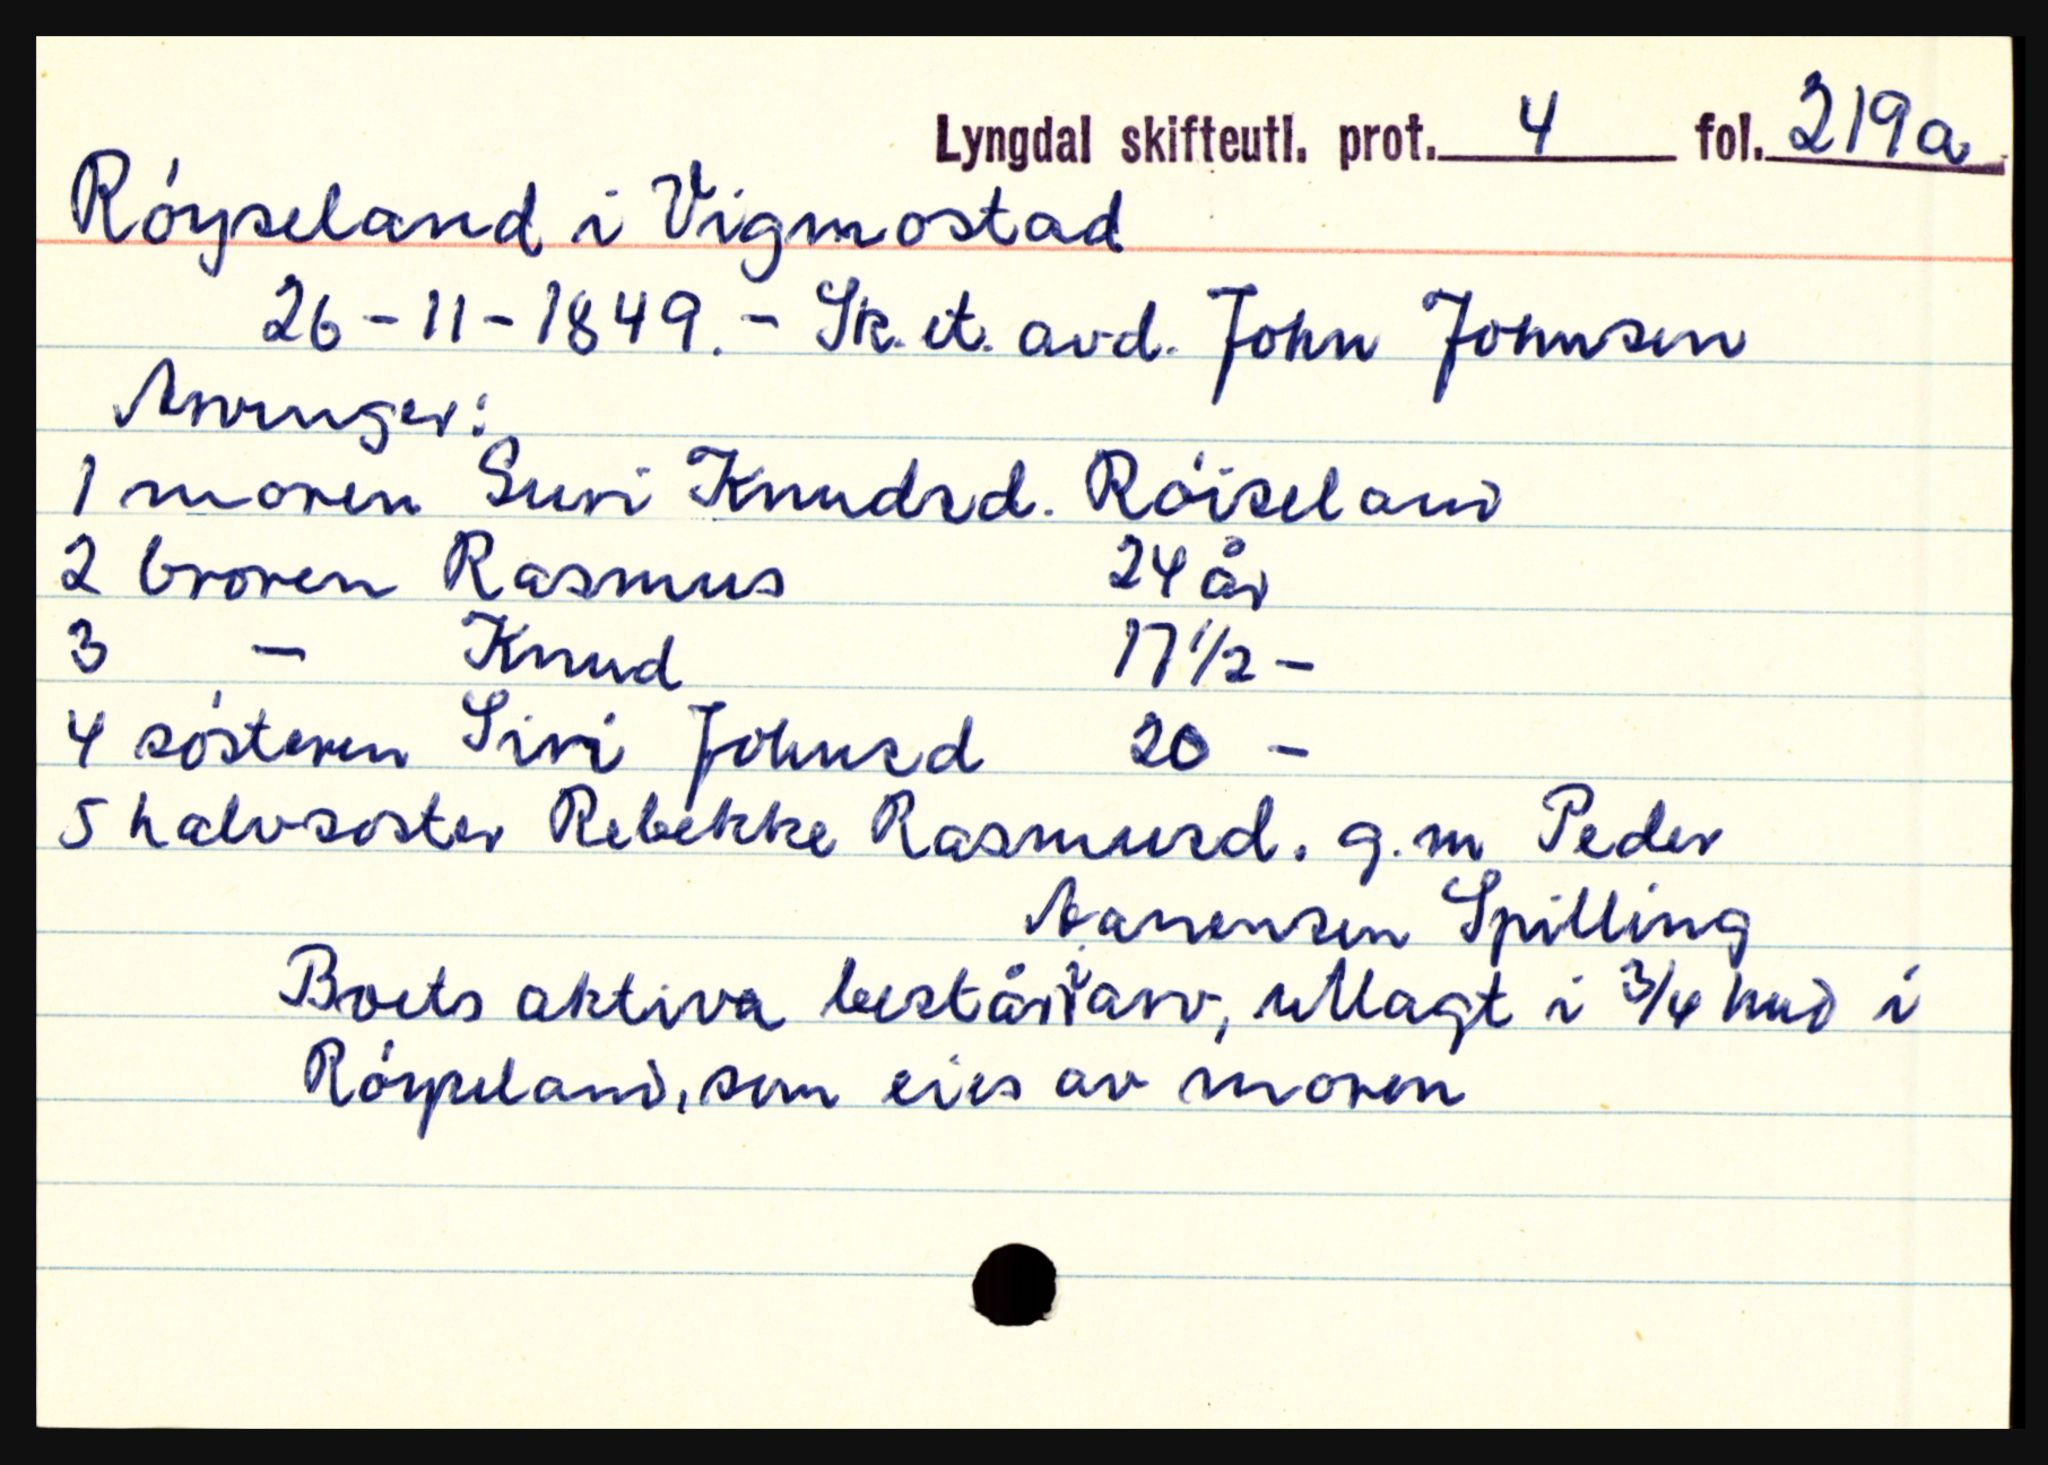 Lyngdal skifteutl. prot. 4 fol. 219a
Röyseland i Vigmostad
26-11-1849. - Sk. et. avd. John Johnsen
Arvinger:
1 moren Suri Knudsd. Röiseland
2 broren Rasmus 24 år
3 - Knud 17 1/2 -
4 sösteren Siri Johnsd 20 -
5 halvsöster Rebekke Rasmusd. g.m Peder
Aanensen Spilling
Boets aktiva består i arv, utlagt i 3/4 hud i
Röyseland, som eies av moren